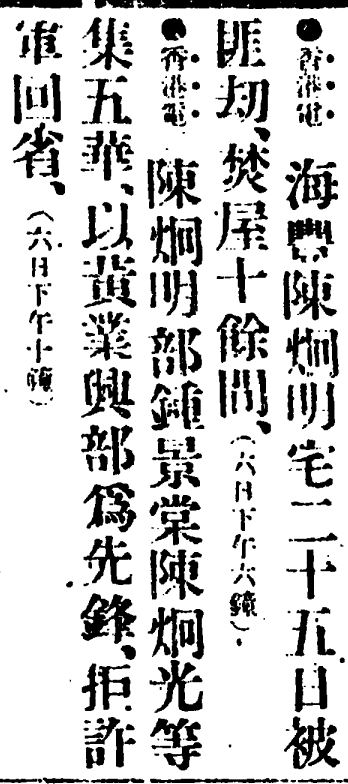 ●香港電 海豐陳炯明宅二十五日被
匪刧、焚屋十餘間、（六日下午六鐘）
●香港電 陳炯明部鍾景棠陳炯光等
集五華、以黃業興部爲先鋒、拒許
軍回省、（六日下午十鐘）